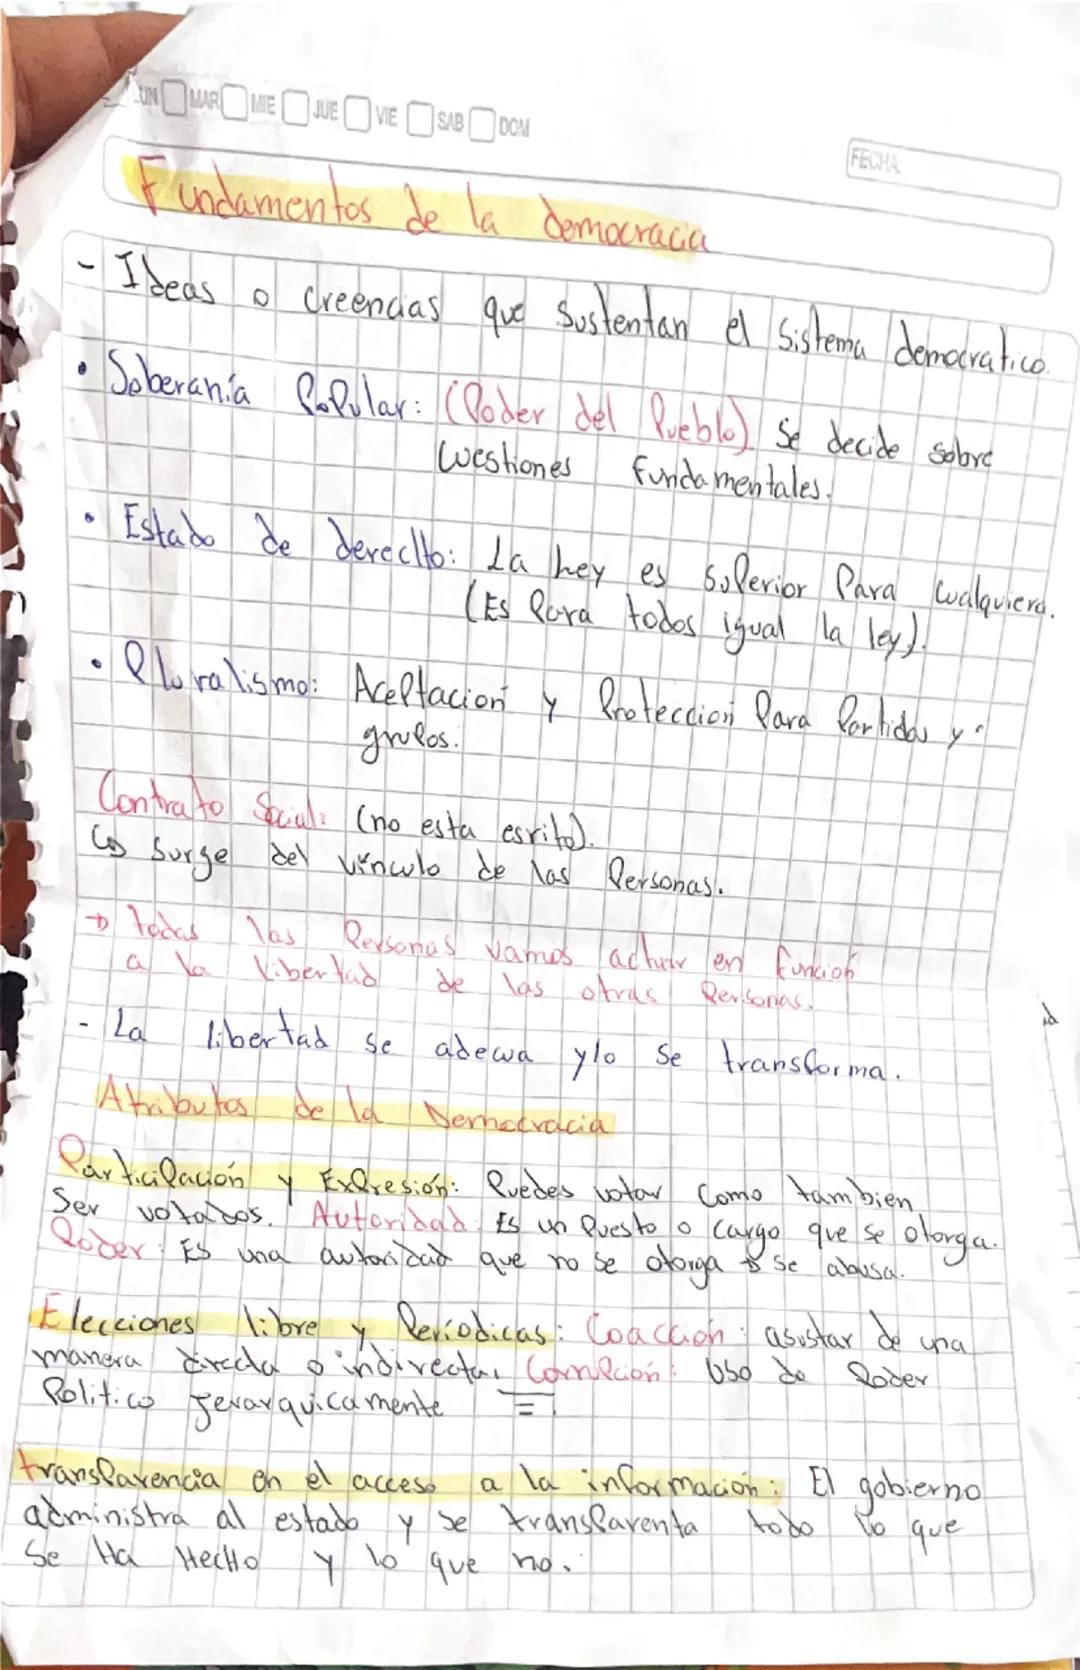 LUN MAR MIE JUE VIE SAB DOM
FECHA
Fundamentos de la democracia
- Ideas o creencias que sustentan el sistema democratico.
• Soberanía Popular: (Poder del Pueblo) se decide sobre
cuestiones fundamentales.
• Estado de derecho: La ley es superior Para cualquiera.
(Es Para todos igual la ley).
• Pluralismo: Aceptación y Protección Para Partidos y
grupos.
Contrato Social: (no esta esrito).
↳ Surge del vínculo de las Personas.
→ todas las Personas vamos actuar en función
a la libertad de las otras Personas.
- La libertad se adecua y/o se transforma.
Atributos de la Democracia
Participación y Expresión: Puedes votar como tambien
Ser votados. Autoridad: Es un Puesto o cargo que se otorga.
Poder: Es una autoridad que no se otorga → se abusa.
Elecciones libre y Periodicas: Coacción: asustar de una
manera directa o indirecta, Corrupción: Uso de Poder
Politico jerarquicamente
transParencia en el acceso a la información: El gobierno
administra al estado y se transParenta todo lo que
Se Ha Hecho y lo que no.